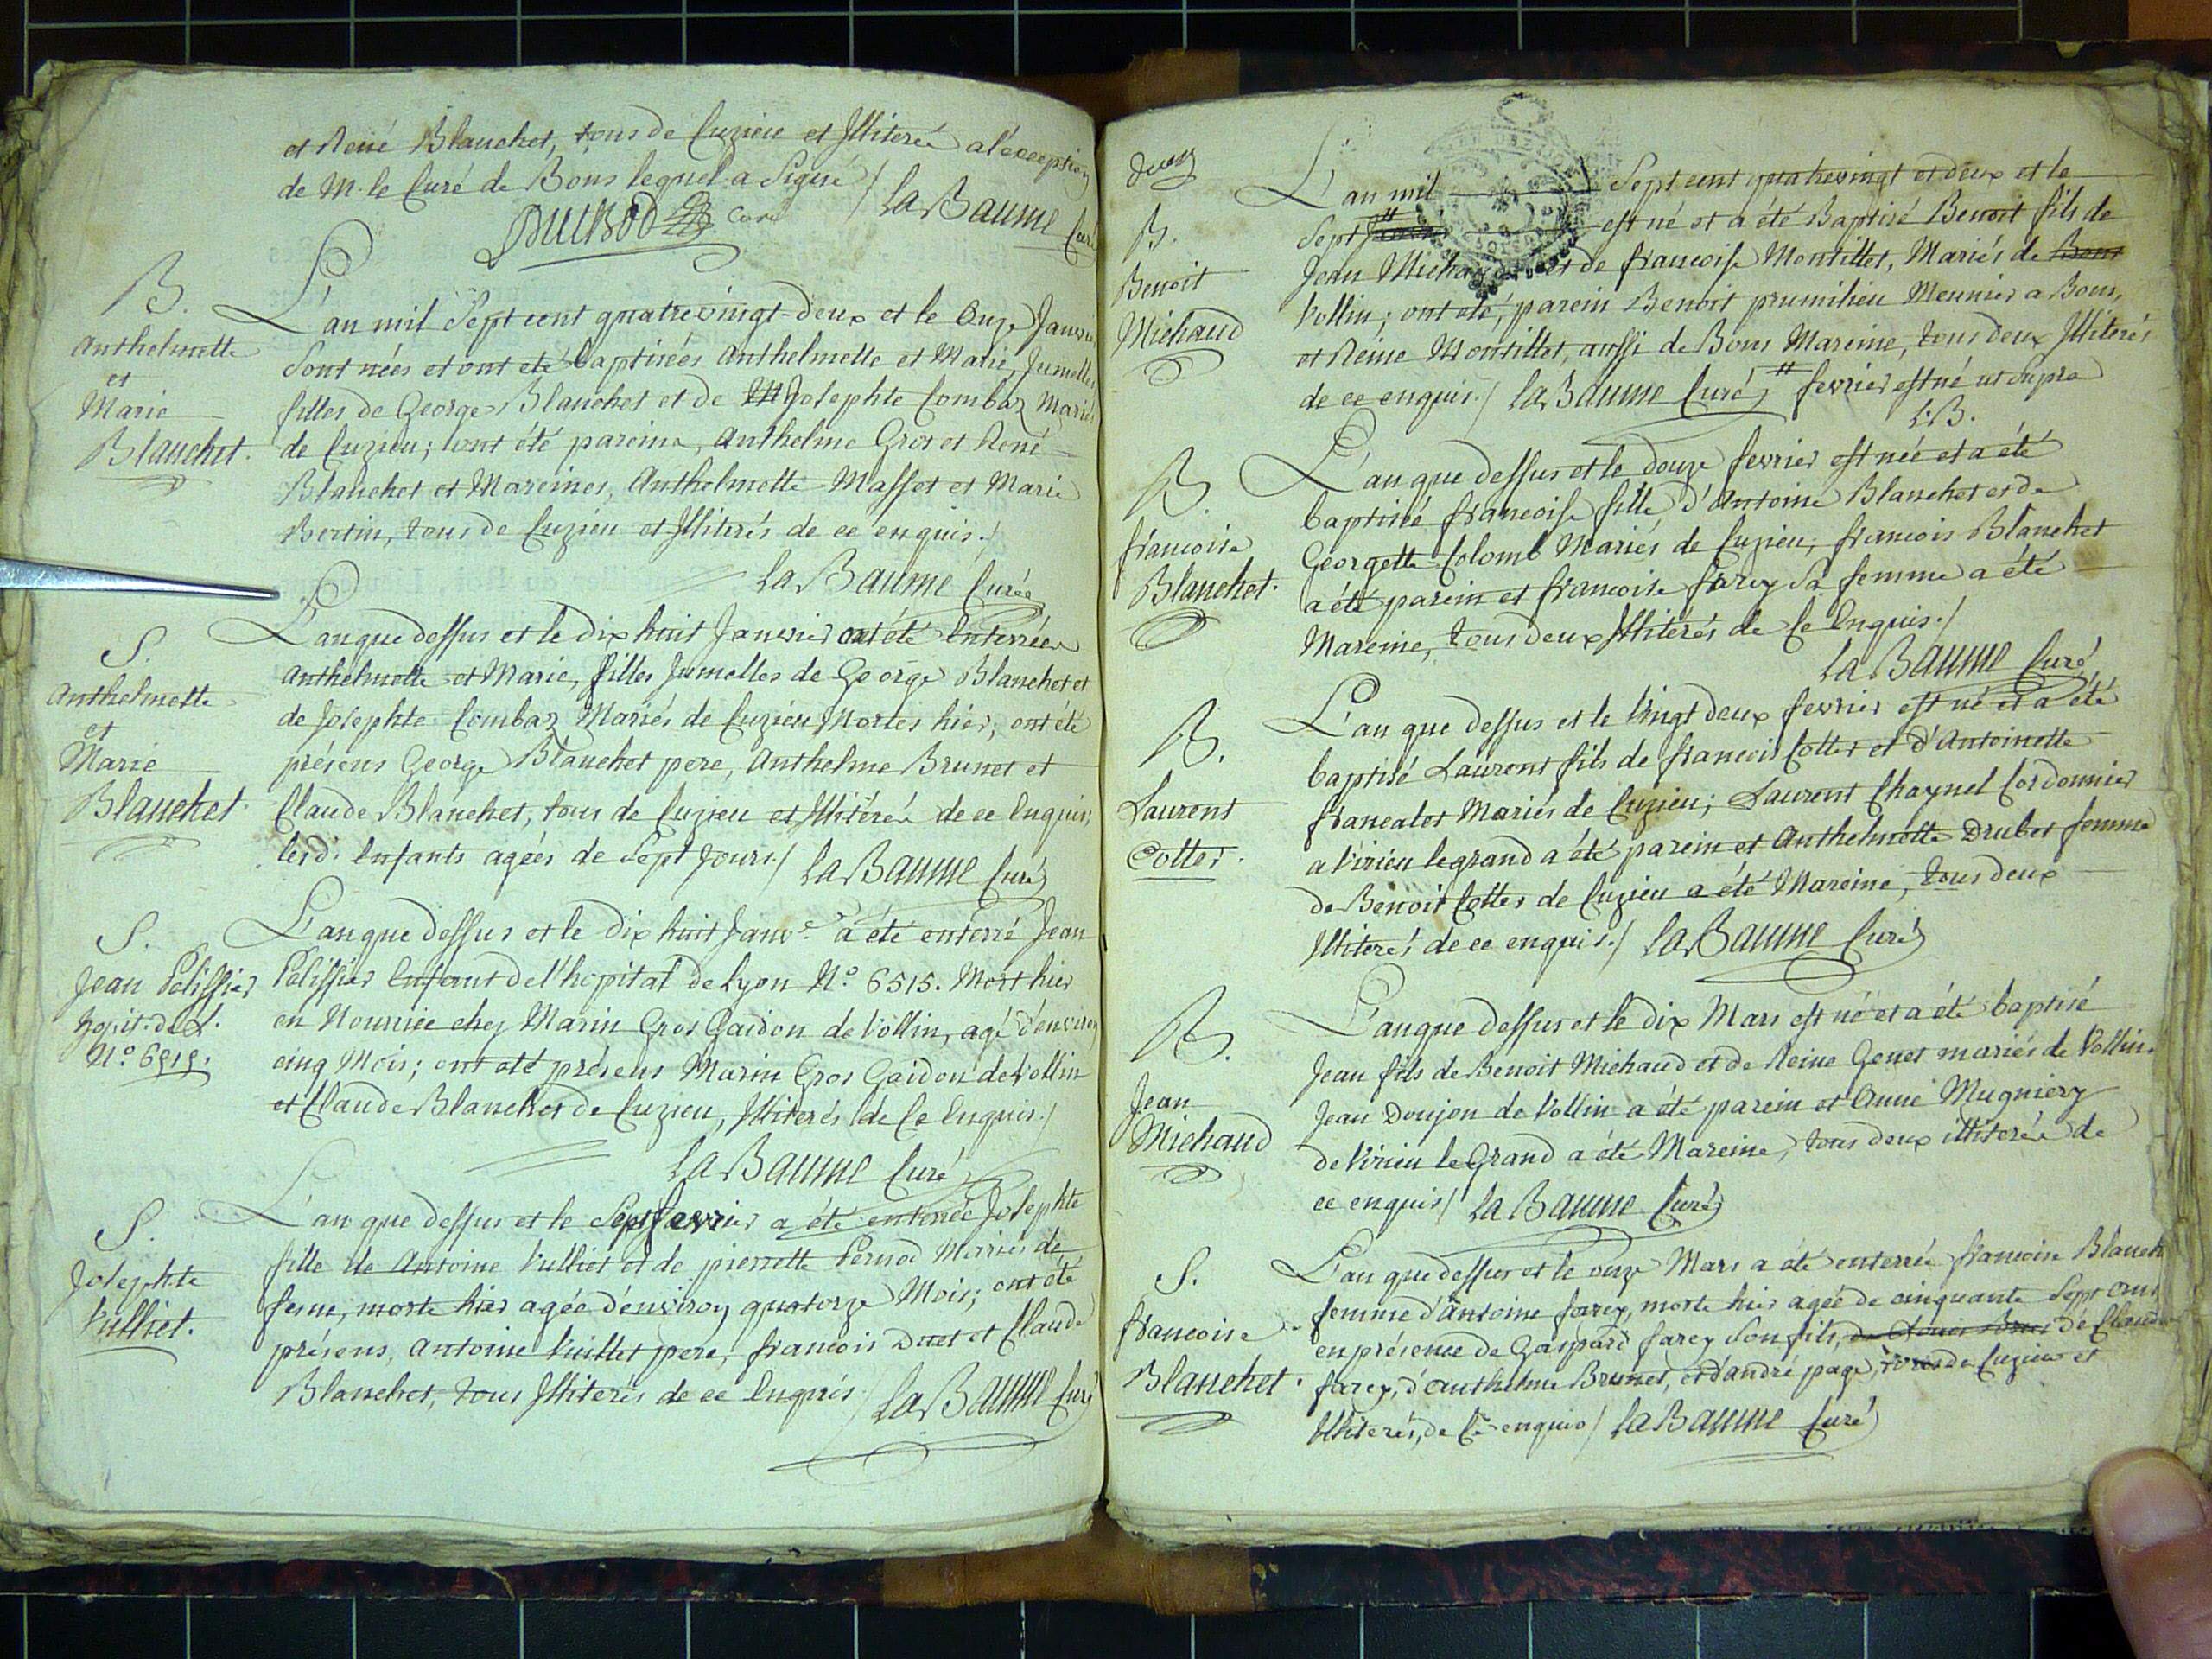 et René Blanchet, tous de Cuzieu et Illiterés a l'éxception
de M. le Curé de Bons lequel a Signé / La Baume Curé
Curé
B.
Anthelmette
et
Marie
Blanchet.
L'an mil Sept cent quatrevingt-deux et le Onze Janvier
Sont nées et ont eté baptisées Anthelmette et Marie, Jumelles,
filles de George Blanchet et de Josephte Combaz Mariés
de Cuzieu; ont été pareins, Anthelme Gros et René
Blanchet et Mareines, Anthelmette Masset et Marie
Bertin, tous de Cuzieu et Illiterés de ce enquis./
La Baume Curé
S.
Anthelmette
et
Marie
Blanchet.
L'an que dessus et le dix huit Janvier ont été Enterrées
Anthelmette et Marie, filles Jumelles de George Blanchet et
de Josephte Combaz Mariés de Cuzieu Mortes hier; ont été
présens George Blanchet pere, Anthelme Brunet et
Claude Blanchet, tous de Cuzieu et Illiterés de ce Enquis;
lesd. Enfants agées de Sept Jours./ La Baume Curé
S.
Jean Pelissier
hopit. de L.
N.º 6515.
L'an que dessus et le dix huit Janv.r a été enterré Jean
Pelissier Enfant de l'hopital de Lyon N.º 6515. Mort hier
en Nourrice chez Marin Gros Gaidon de Vollin, agé d'environ
cinq Mois; ont eté présens Marin Gros Gaidon de Vollin
et Claude Blanchet de Cuzieu, Illiterés de Ce Enquis./
La Baume Curé
S.
Josephte
Vulliet.
L'an que dessus et le Sept fevrier a été enterrée Josephte
fille de Antoine Vulliet et de pierrette Pernod Mariés de
ferne, morte hier agée d'environ quatorze Mois; ont été
présens, Antoine Vuillet pere, francois Duet et Claude
Blanchet, tous Illiterés de ce Enquis / La Baume Curé
deux
B.
Benoit
Michaud
L'an mil Sept cent quatrevingt et deux et le
Sept # est né et a été Baptisé Benoit fils de
Jean Michaud et de francoise Montillet, Mariés de Bons
Vollin; ont eté, parein Benoit prumilieu Meunier a Bons,
et Reine Montillet, aussi de Bons Mareine, tous deux Illiterés
de ce enquis./ La Baume Curé # fevrier est né ut Supra
L.B.
B.
francoise
Blanchet.
L'an que dessus et le douze fevrier est née et a été
baptisée francoise fille d'Antoine Blanchet et de
Georgette Colomb Mariés de Cuzieu; francois Blanchet
a été parein et francoise farey Sa femme a été
Mareine, tous deux Illiterés de Ce Enquis./
La Baume Curé
B.
Laurent
Cottet.
L'an que dessus et le Vingt deux fevrier est né et a été
baptisé Laurent fils de francois Cottet et d'Antoinette
francalet Mariés de Cuzieu; Laurent Chaynel Cordonnier
a Virieu legrand a été parein et Anthelmette Drubet femme
de Benoit Cottet de Cuzieu a été Mareine, tous deux
Illiterés de ce enquis./ La Baume Curé
B.
Jean
Michaud
L'an que dessus et le dix Mars est né et a été baptisé
Jean fils de Benoit Michaud et de Reine Genet mariés de Vollin.
Jean Doujon de Vollin a été parein et Anne Mugniery
de Virieu le Grand a été Mareine, tous deux illiterés de
ce enquis/ La Baume Curé
S.
francoise
Blanchet.
L'an que dessus et le onze Mars a été enterrée francoise Blanch
femme d'Antoine farey, morte hier agée de cinquante Sept ans
en présence de Gaspard farey Son fils, de Claude
farey, d'anthelme Brunet, et d'andré page, tous de Cuzieu et
Illiterés, de Ce enquis / La Baume Curé